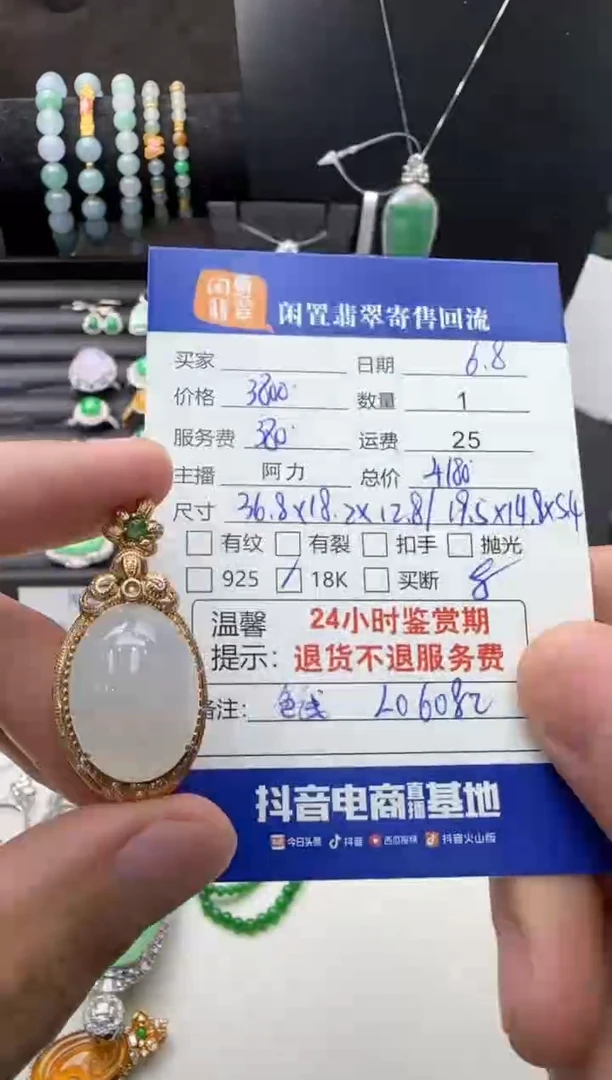 闲置翡翠寄售回流
买家 日期 6.8
价格 3800 数量 1
服务费 380 运费 25
主播 阿力 总价 4180
尺寸 36.8×18.2×12.8/19.5×14.8×5.4
有纹 有裂 扣手 抛光
925 18K 买断
温馨 24小时鉴赏期
提示: 退货不退服务费
备注: 色浅 L06082
抖音电商直播基地
今日头条 抖音 西瓜视频 抖音火山版